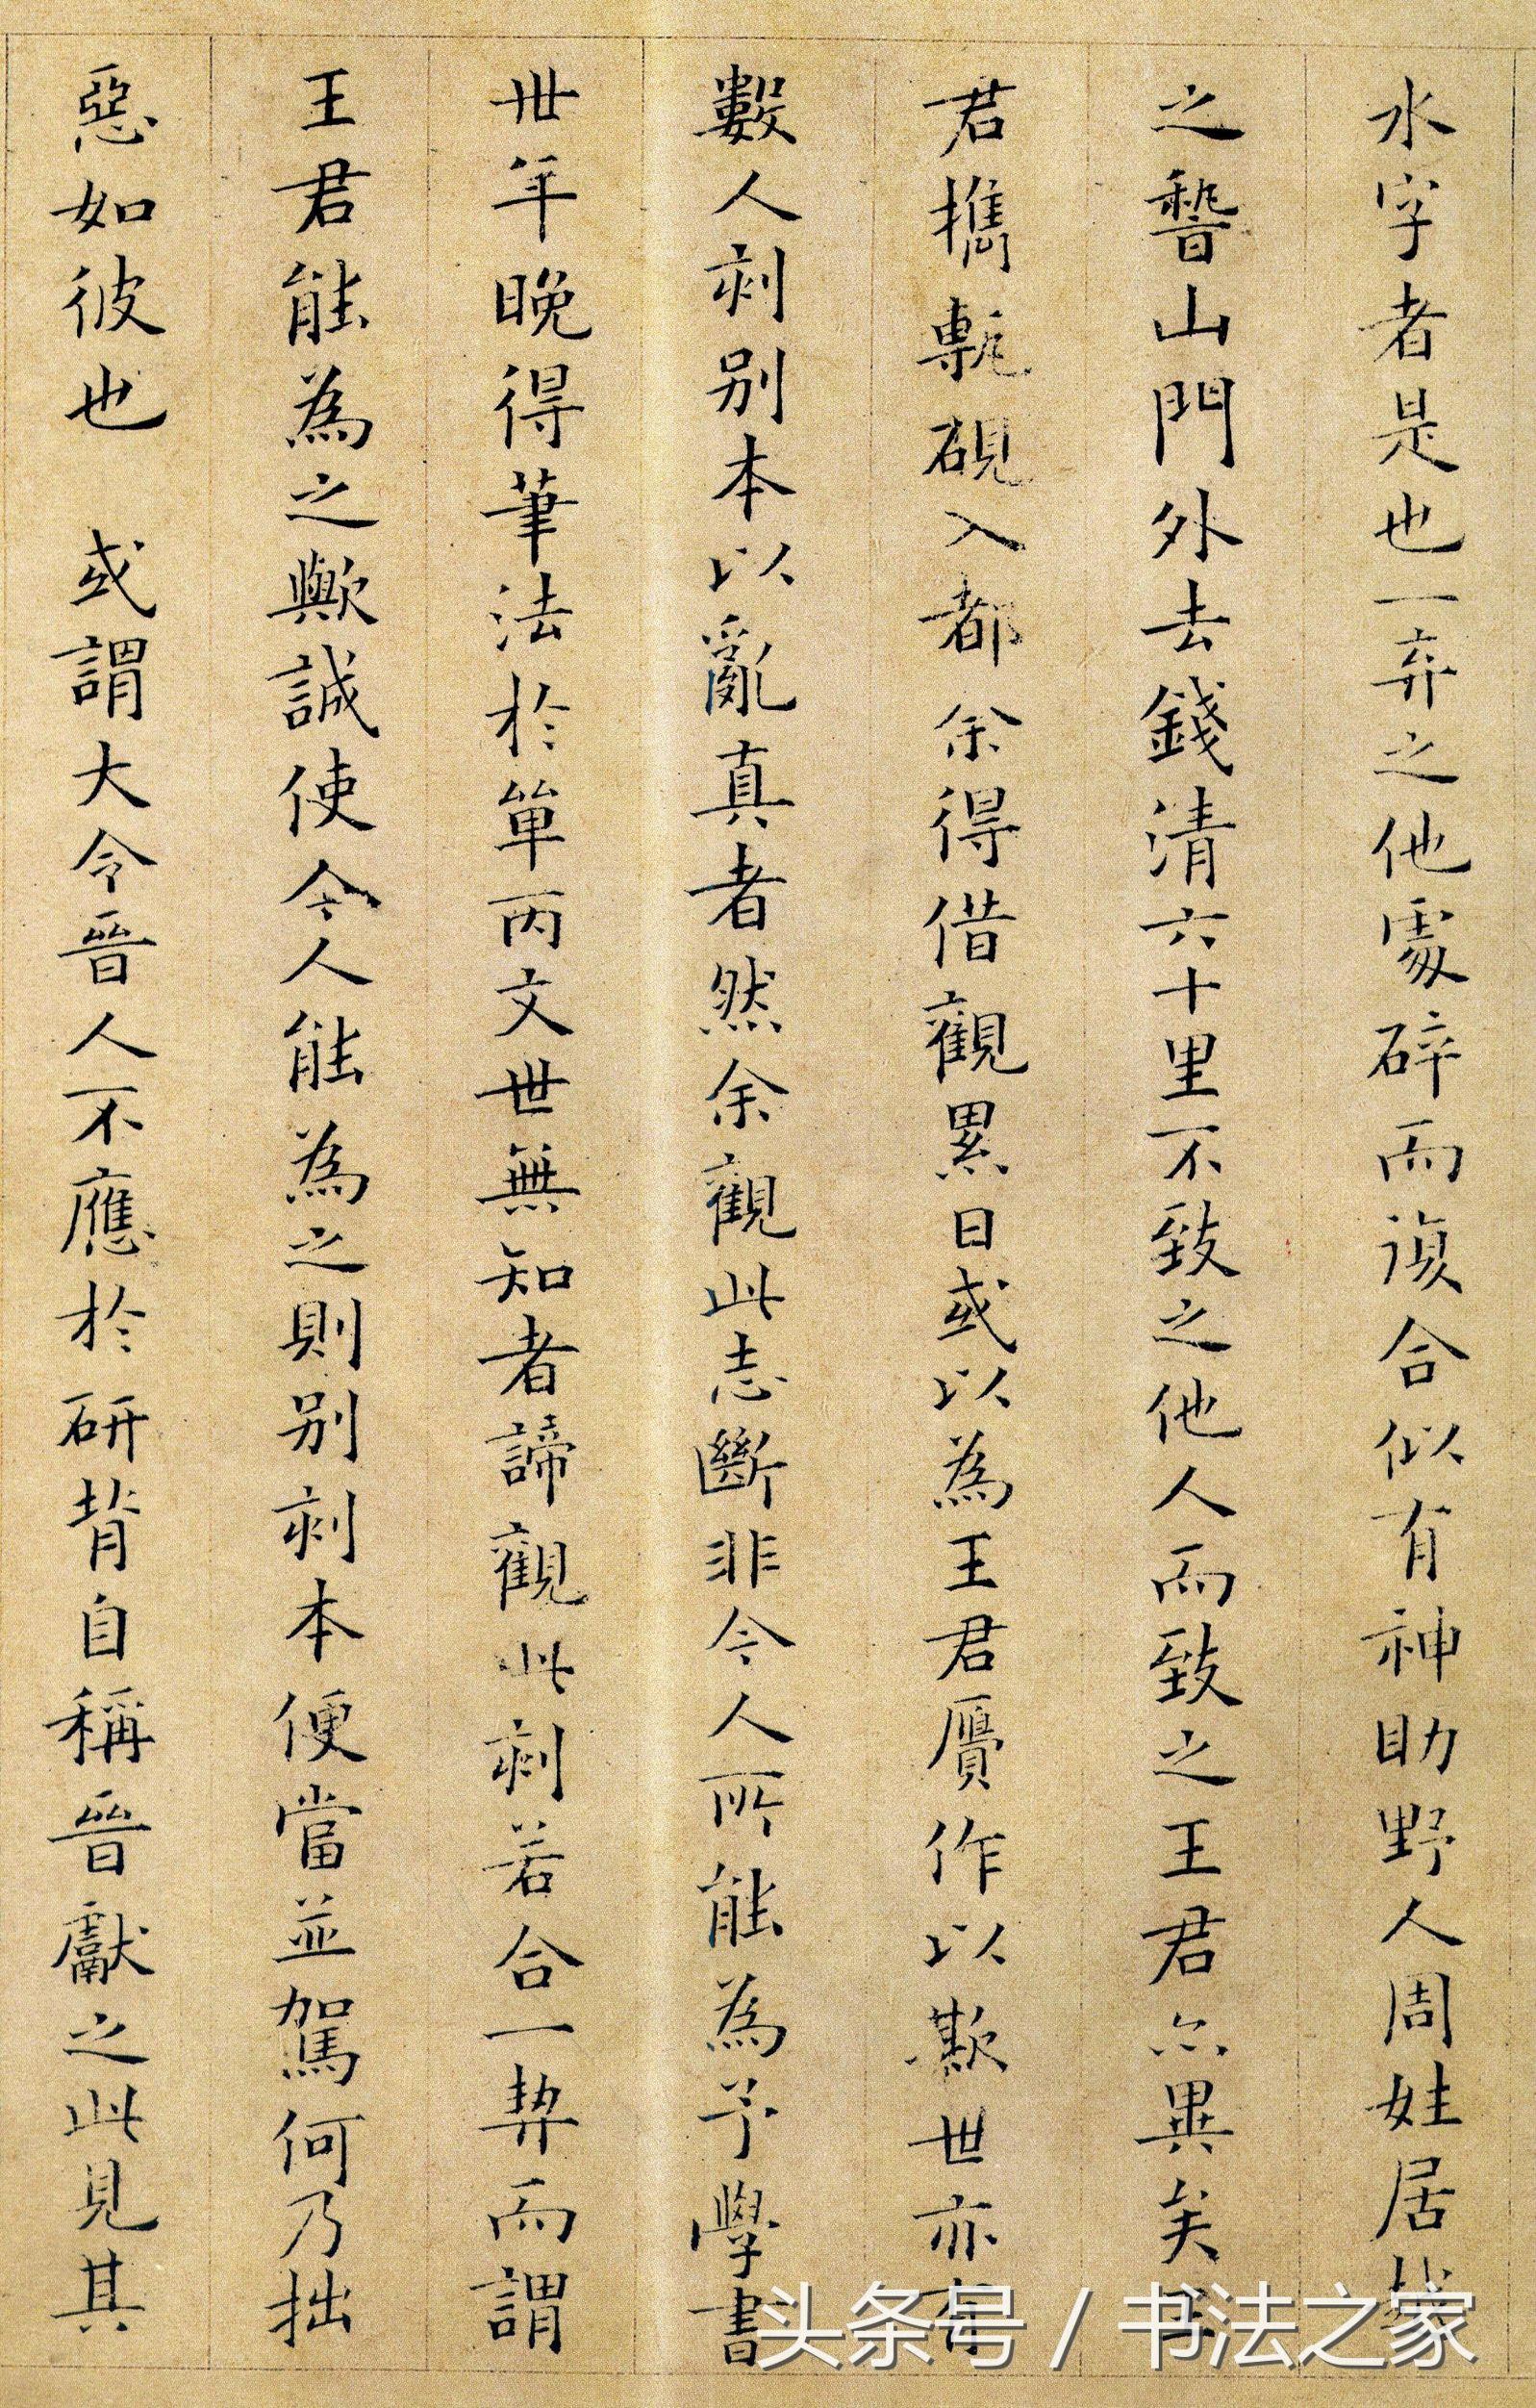 水字者是也一弃之他處碎而復合似有神助野人周姓居越
之嵆山門外去錢清六十里不致之他人而致之王君亦異矣王
君攜甎硯入都余得借觀累日或以為王君贋作以欺世亦有
數人刻别本以亂真者然余觀此志斷非今人所能為予學書
卅年晚得筆法於單丙文世無知者諦觀此刻若合一契而謂
王君能為之歟誠使今人能為之則别刻本便當並駕何乃拙
惡如彼也 或謂大令晉人不應於研背自稱晉獻之此見其
头条号 / 书法之家